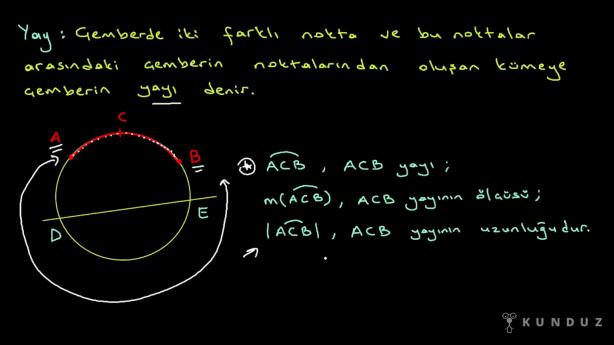 Yay : Çemberde iki farklı nokta ve bu noktalar
arasındaki çemberin noktalarından oluşan kümeye
çemberin yayı denir.
C
A
B
ACB , ACB yayı ;
m(ACB) , ACB yayının ölçüsü ;
E
D
|ACB| , ACB yayının uzunluğudur.
KUNDUZ